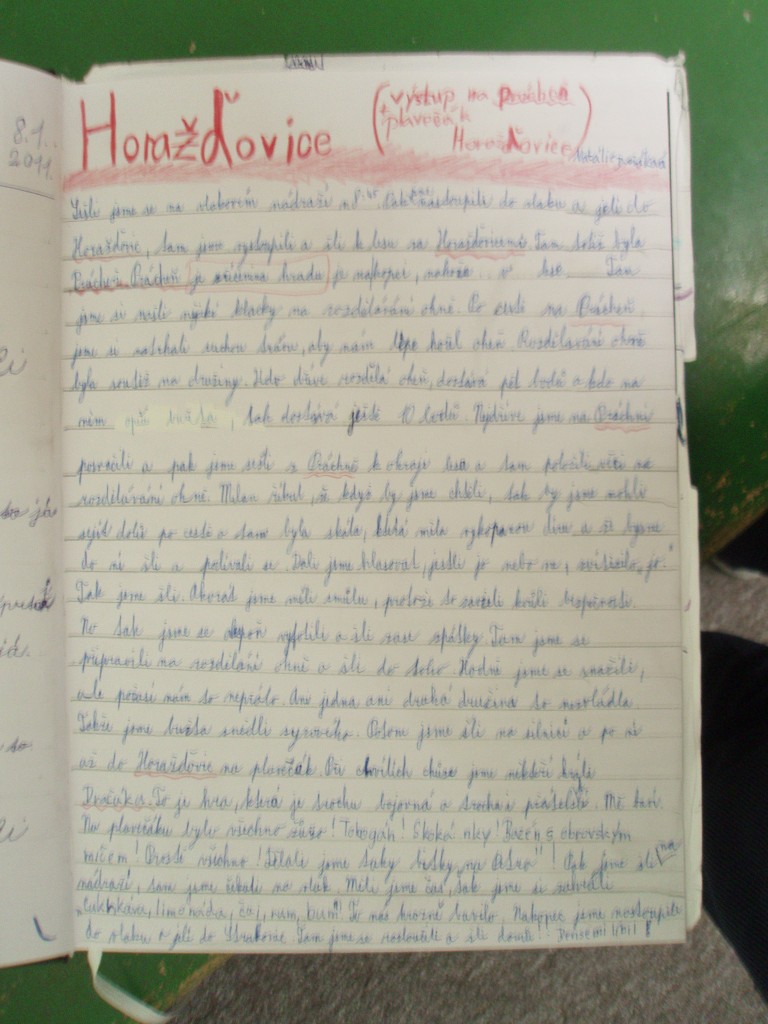 8.1.
2011
Horažďovice
(výstup na Prácheň
+ plavečák
Horažďovice)
Sešli jsme se na nádraží v 8. Pak jsme nastoupili do vlaku a jeli do
Horažďovic, tam jsme vystoupili a šli k lesu za Horažďovicemi. Tam totiž byla
Prácheň. Prácheň je zřícenina hradu je na kopci, v lese. Tam
jsme si našli nějaké klacky na rozdělávání ohně. Po cestě na Prácheň,
jsme si natrhali suchou trávu, aby nám lépe hořel oheň. Rozdělávání ohně
byla soutěž na družiny. Kdo dříve rozdělá oheň, dostává pět bodů a kdo na
něm opeče buřta, tak dostává ještě 10 bodů. Nejdříve jsme na Práchni
posvačili a pak jsme sešli z Práchně k okraji lesa a tam položili věci na
rozdělávání ohně. Milan říkal, že když by jsme chtěli, tak by jsme mohli
sejít dolů po cestě a tam byla skála, která měla vykopanou díru a že bysme
do ní šli a podívali se. Dali jsme hlasovat, jestli jo nebo ne, zvítězilo „jo."
Tak jsme šli. Akorát jsme měli smůlu, protože to zavřeli kvůli bezpečnosti.
No tak jsme se aspoň vyfotili a šli zase zpátky. Tam jsme se
připravili na rozdělání ohně a šli do toho. Hodně jsme se snažili,
ale počasí nám to nepřálo. Ani jedna ani druhá družina to nezvládla.
Takže jsme buřta snědli syrového. Potom jsme šli na silnici a po ní
až do Horažďovic na plavečák. Při chvílích chůze jsme někteří hráli
Dračáka. To je hra, která je trochu bojovná a trochu přátelská. Mě baví.
Na plavečáku bylo všechno žůžo! Tobogán! Skokánky! Bazén s obrovským
míčem! Prostě všechno! Dělali jsme taky bitky Pak jsme šli na
nádraží, tam jsme čekali na vlak. Měli jsme čas, tak jsme si zahráli
„Cukrkávu, limonáda, čaj, rum, bum! To nás hrozně bavilo. Nakonec jsme nastoupili
do vlaku a jeli do Strakonic. Tam jsme se rozloučili a šli domů!!